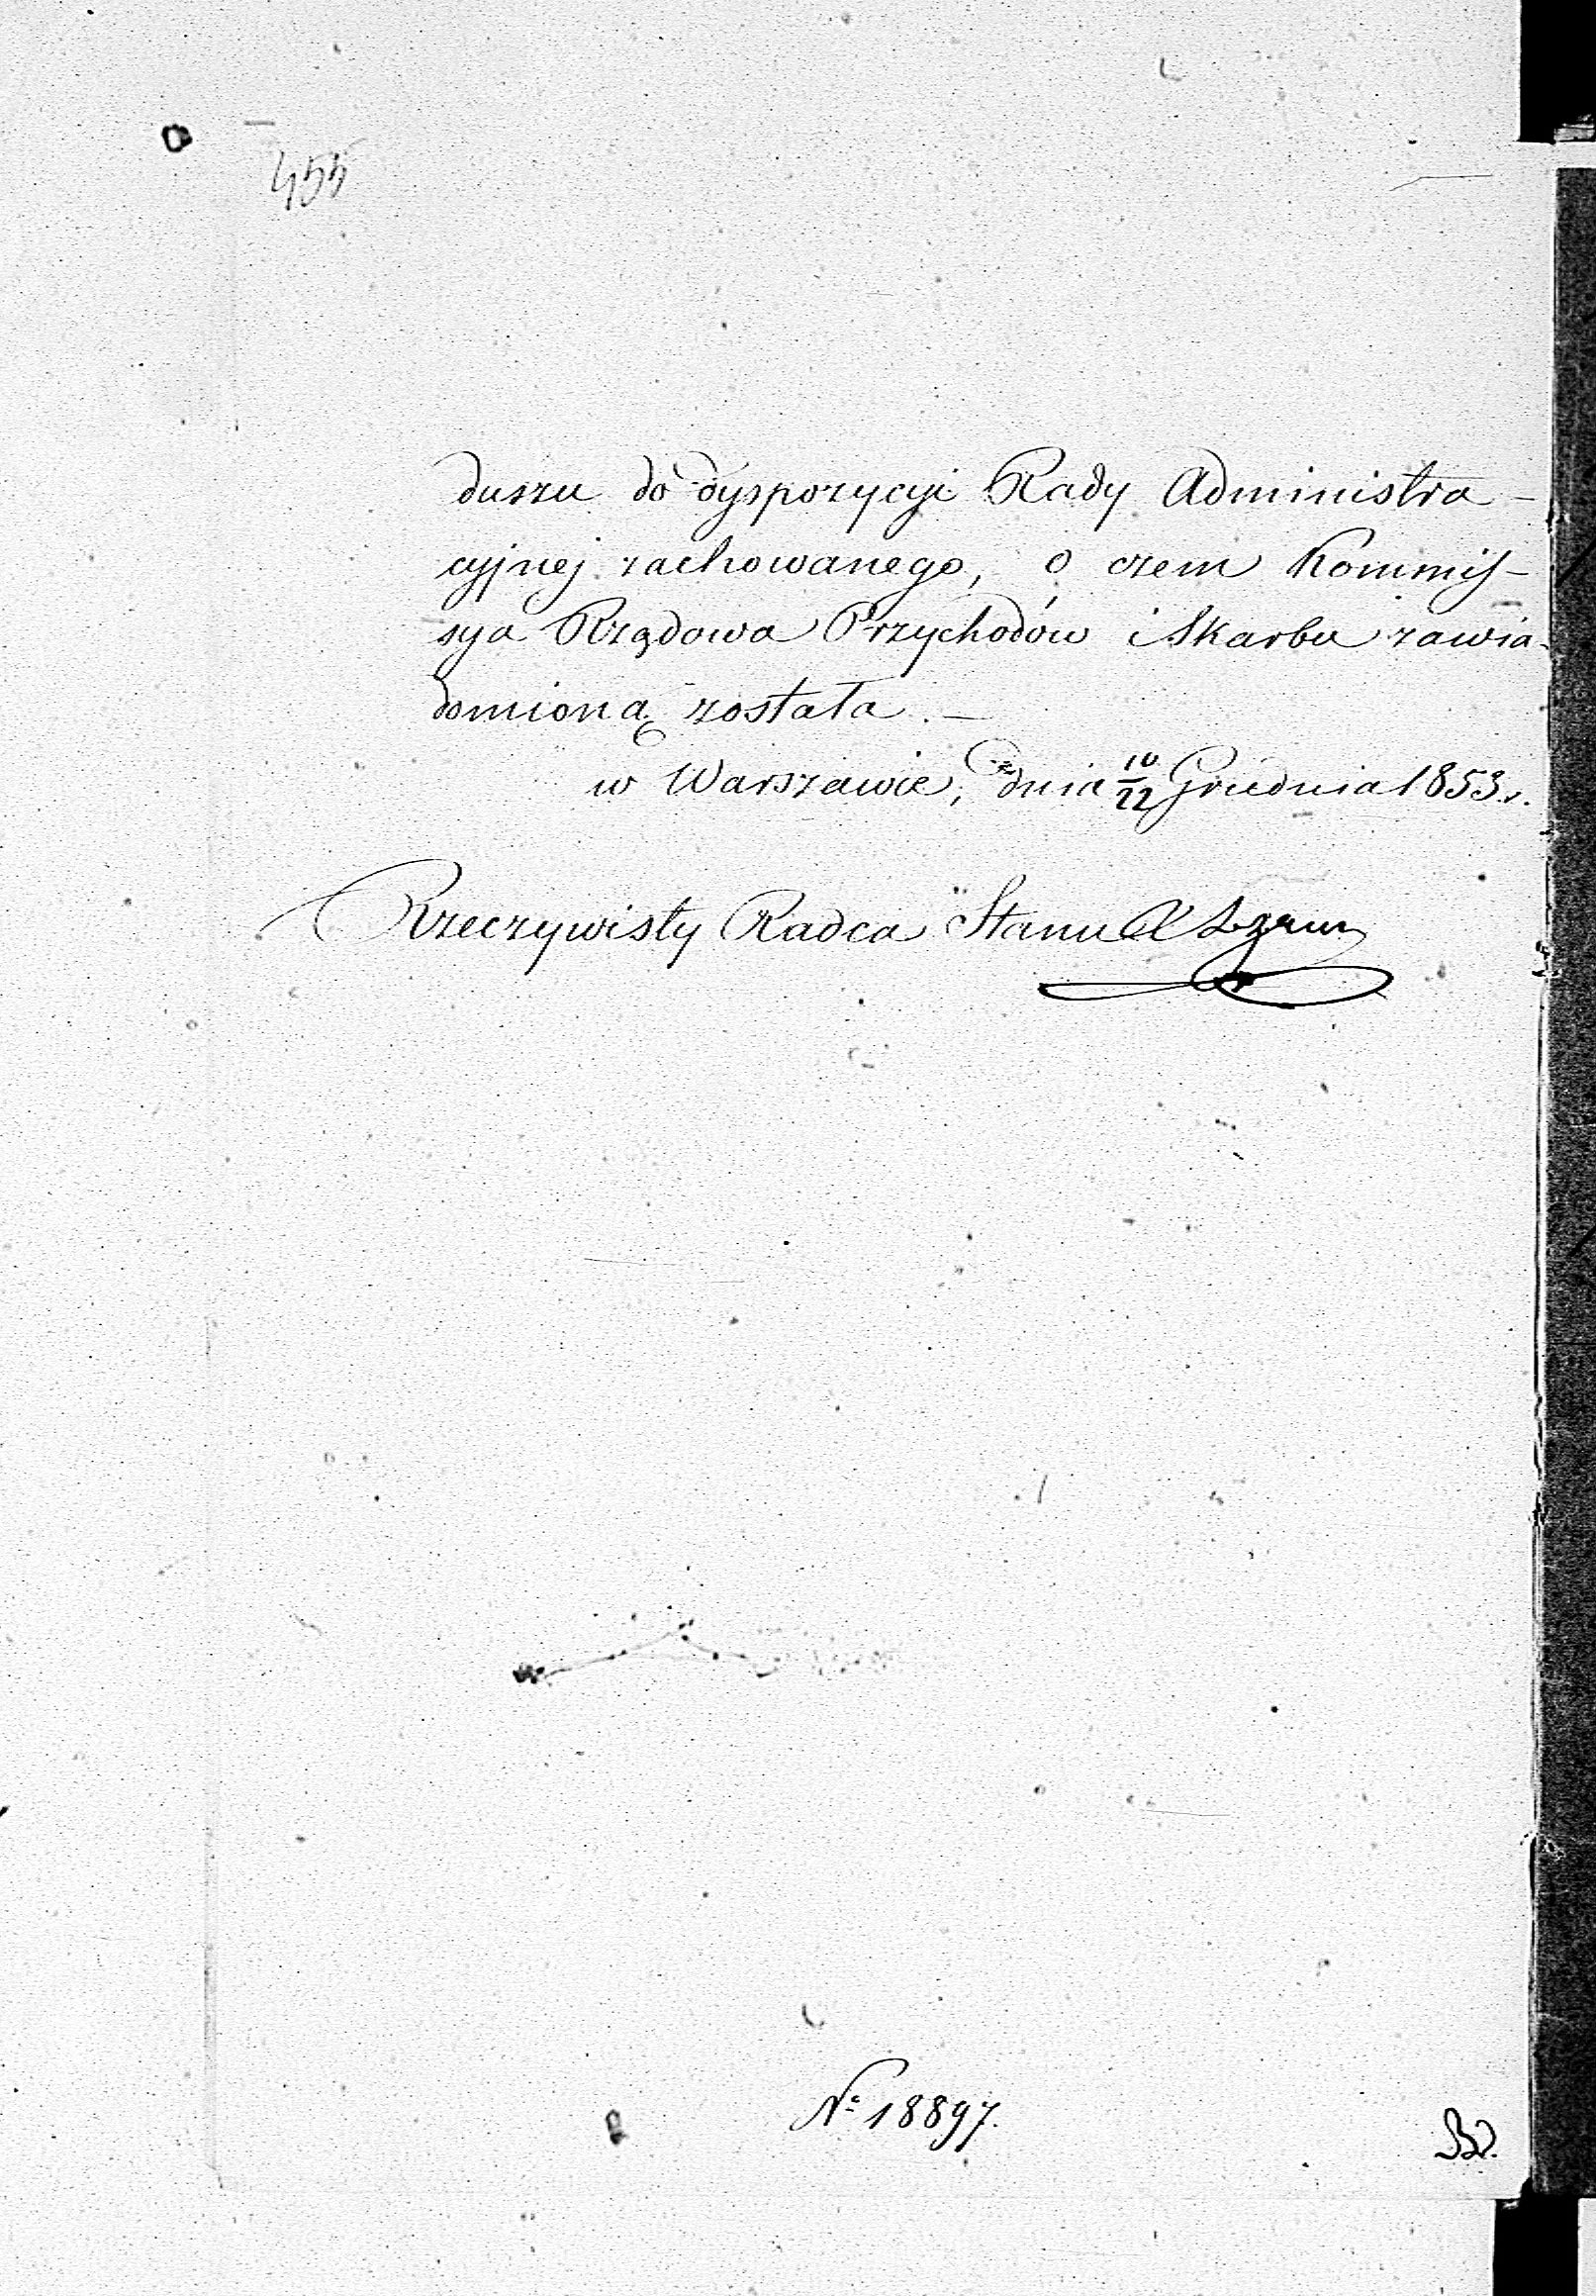 455
duszu do dyspozycyi Rady Administra-
cyjnej zachowanego, o czem Kommis-
sya Rządowa Przychodów i Skarbu zawia-
domioną została. —
w Warszawie, dnia 10/22 Grudnia 1853 r.
Rzeczywisty Radca Stanu
№ 18897.